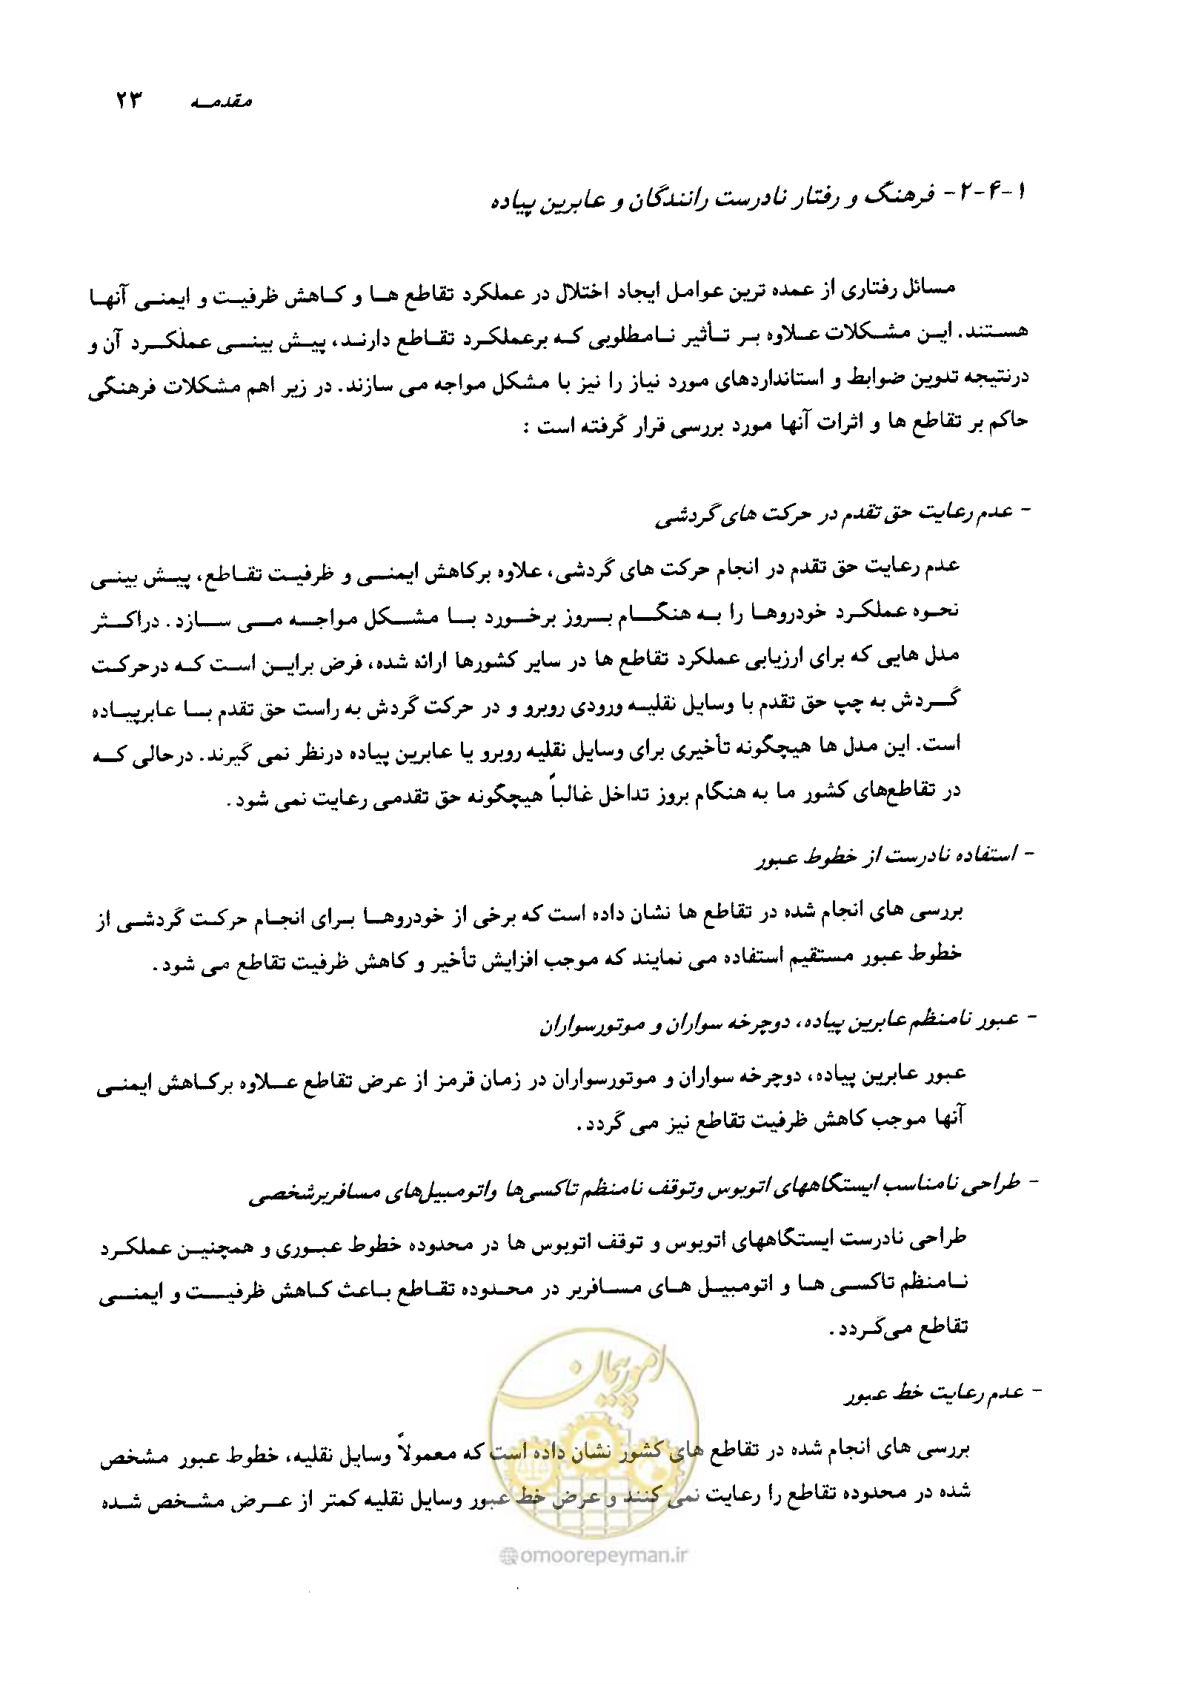 مقدمه ۲۳
۱-۴-۲- فرهنگ و رفتار نادرست رانندگان و عابرین پیاده
مسائل رفتاری از عمده ترین عوامل ایجاد اختلال در عملکرد تقاطع ها و کاهش ظرفیت و ایمنی آنها
هستند. این مشکلات علاوه بر تأثیر نامطلوبی که برعملکرد تقاطع دارند، پیش بینی عملکرد آن و
درنتیجه تدوین ضوابط و استانداردهای مورد نیاز را نیز با مشکل مواجه می سازند. در زیر اهم مشکلات فرهنگی
حاکم بر تقاطع ها و اثرات آنها مورد بررسی قرار گرفته است :
- عدم رعایت حق تقدم در حرکت های گردشی
عدم رعایت حق تقدم در انجام حرکت های گردشی، علاوه برکاهش ایمنی و ظرفیت تقاطع، پیش بینی
نحوه عملکرد خودروها را به هنگام بروز برخورد با مشکل مواجه می سازد. دراکثر
مدل هایی که برای ارزیابی عملکرد تقاطع ها در سایر کشورها ارائه شده، فرض براین است که درحرکت
گردش به چپ حق تقدم با وسایل نقلیه ورودی روبرو و در حرکت گردش به راست حق تقدم با عابرپیاده
است. این مدل ها هیچگونه تأخیری برای وسایل نقلیه روبرو یا عابرین پیاده درنظر نمی گیرند. درحالی که
در تقاطع‌های کشور ما به هنگام بروز تداخل غالباً هیچگونه حق تقدمی رعایت نمی شود.
- استفاده نادرست از خطوط عبور
بررسی های انجام شده در تقاطع ها نشان داده است که برخی از خودروها برای انجام حرکت گردشی از
خطوط عبور مستقیم استفاده می نمایند که موجب افزایش تأخیر و کاهش ظرفیت تقاطع می شود.
- عبور نامنظم عابرین پیاده، دوچرخه سواران و موتورسواران
عبور عابرین پیاده، دوچرخه سواران و موتورسواران در زمان قرمز از عرض تقاطع علاوه برکاهش ایمنی
آنها موجب کاهش ظرفیت تقاطع نیز می گردد.
- طراحی نامناسب ایستگاههای اتوبوس وتوقف نامنظم تاکسی‌ها واتومبیل‌های مسافربرشخصی
طراحی نادرست ایستگاههای اتوبوس و توقف اتوبوس ها در محدوده خطوط عبوری و همچنین عملکرد
نامنظم تاکسی ها و اتومبیل های مسافربر در محدوده تقاطع باعث کاهش ظرفیت و ایمنی
تقاطع می‌گردد.
- عدم رعایت خط عبور
بررسی های انجام شده در تقاطع های کشور نشان داده است که معمولاً وسایل نقلیه، خطوط عبور مشخص
شده در محدوده تقاطع را رعایت نمی کنند و عرض خط عبور وسایل نقلیه کمتر از عرض مشخص شده
امور پیمان
@omoorepeyman.ir